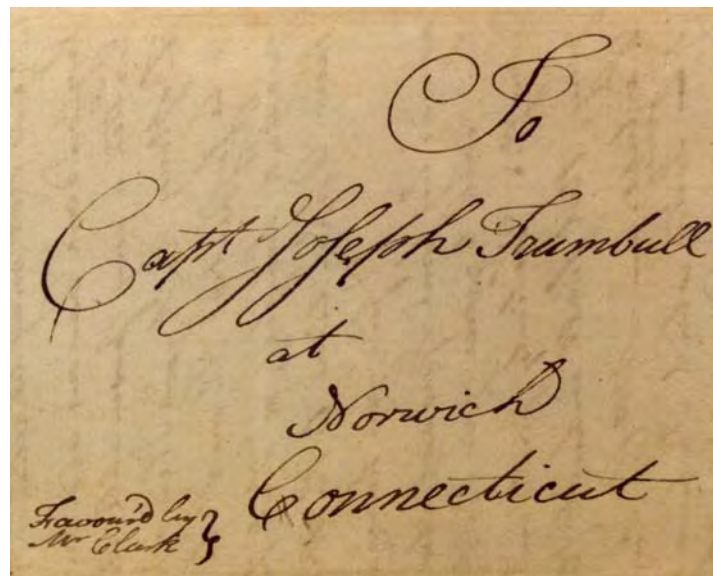 To
Capt Joseph Trumbull
at
Norwich
Connecticut
Favour'd by
Mr Clark